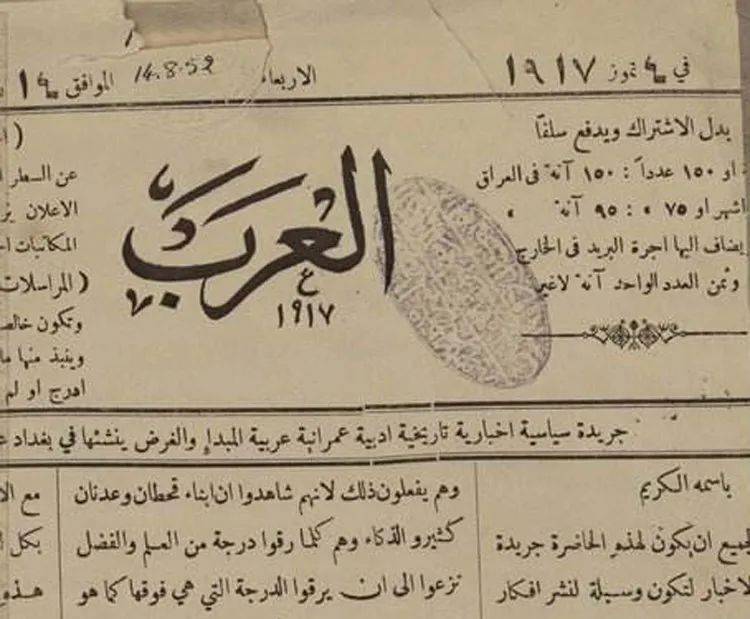 في ٤ تموز ١٩١٧ الاربعاء 14.8.52 الموافق ١٤
بدل الاشتراك ويدفع سلفاً
او ١٥٠ عدداً : ١٥٠ آنة فى العراق
اشهر او ٧٥ » : ٩٥ آنة »
يضاف اليها اجرة البريد فى الخارج
وثمن العدد الواحد آنة لاغير
العرب
ع
١٩١٧
عن السعر
الاعلان
المكاتبات
( المراسلات
وتكون
وينبذ منها
ادرج او لم
جريدة سياسية اخبارية تاريخية ادبية عمرانية عربية المبدإ والغرض ينشئها في بغداد
باسمه الكريم
ان يكون لهذه الحاضرة جريدة
لتكون وسيلة لنشر افكار
وهم يفعلون ذلك لانهم شاهدوا ان ابناء قحطان وعدنان
كثيرو الذكاء وهم كلما رقوا درجة من العلم والفضل
نزعوا الى ان يرقوا الدرجة التي هي فوقها كما هو
مع
بكل